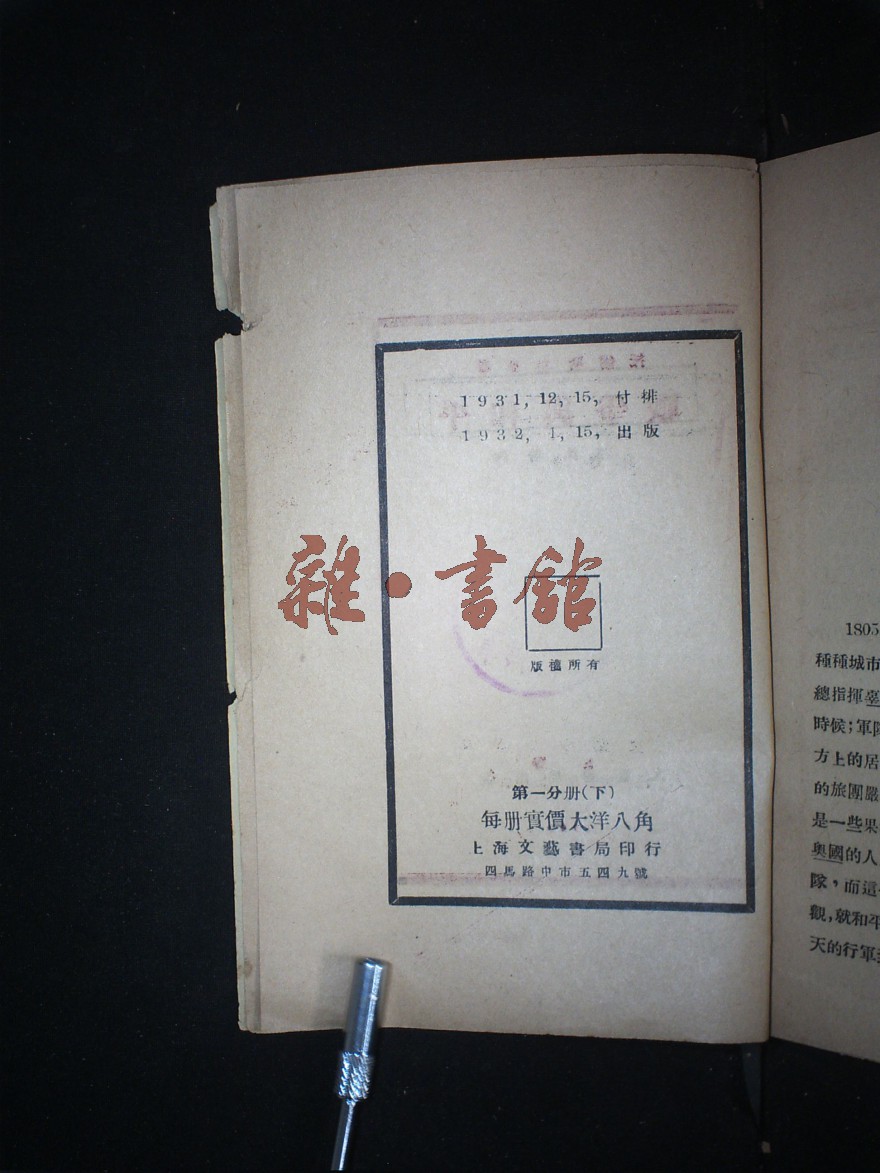 1931, 12, 15, 付排
1932, 1, 15, 出版
雜·書館
版權所有
第一分册(下)
每册實價大洋八角
上海文藝書局印行
四馬路中市五四九號
1805
種種城市
總指揮臺
時候；軍
方上的居
的旅團嚴
是一些果
奧國的人
隊，而這
觀，就和平
天的行軍